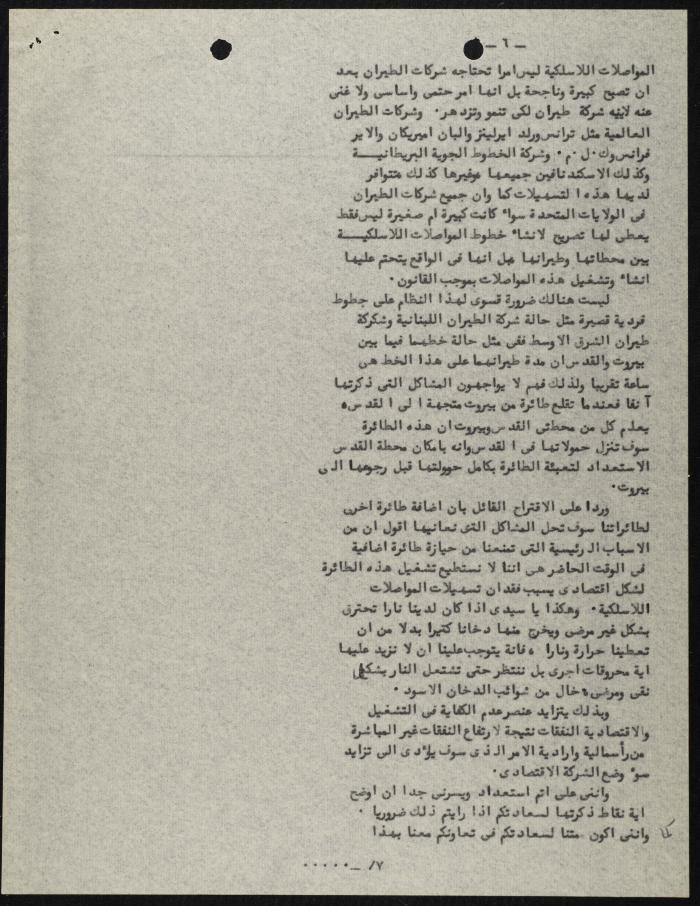 ـ ٦ ـ
المواصلات اللاسلكية ليس امرا تحتاجه شركات الطيران بعد
ان تصبح كبيرة وناجحة بل انها امر حتمي واساسي ولا غنى
عنه لاييه شركة طيران لكي تنمو وتزدهر. وشركات الطيران
العالمية مثل ترانس ورلد ايرلينز والبان اميريكان والاير
فرانس وك.ل.م. وشركة الخطوط الجوية البريطانيـــة
وكذلك الاسكندنافين جميعها وغيرها كذلك تتوافر
لديها هذه التسهيلات كما وان جميع شركات الطيران
في الولايات المتحدة سواء كانت كبيرة ام صغيرة ليس فقط
يعطى لها تصريح لانشاء خطوط المواصلات اللاسلكيـــة
بين محطاتها وطيرانها بل انها في الواقع يتحتم عليها
انشاء وتشغيل هذه المواصلات بموجب القانون.
ليست هنالك ضرورة قسوى لهذا النظام على خطوط
فردية قصيرة مثل حالة شركة الطيران اللبنانية وشكركة
طيران الشرق الاوسط ففي مثل حالة خطهما فيما بين
بيروت والقدس ان مدة طيرانهما على هذا الخط هي
ساعة تقريبا ولذلك فهم لا يواجهون المشاكل التي ذكرتها
آنفا فعندما تقلع طائرة من بيروت متجهة الى القدس
يعلم كل من محطتي القدس وبيروت ان هذه الطائرة
سوف تنزل حمولاتها في القدس وانه بامكان محطة القدس
الاستعداد لتعبئة الطائرة بكامل حوولتها قبل رجوعها الى
بيروت.
وردا على الاقتراح القائل بان اضافة طائرة اخرى
لطائراتنا سوف تحل المشاكل التي نعانيها اقول ان من
الاسباب الرئيسية التي تمنعنا من حيازة طائرة اضافية
في الوقت الحاضر هي اننا لا نستطيع تشغيل هذه الطائرة
لشكل اقتصادي يسبب فقدان تسهيلات المواصلات
اللاسلكية. وهكذا يا سيدي اذا كان لدينا نارا تحترق
بشكل غير مرضي ويخرج منها دخانا كثيرا بدلا من ان
تعطينا حرارة ونارا ، فانه يتوجب علينا ان لا نزيد عليها
اية محروقات اجرى بل ننتظر حتى تشتعل النار بشكل
نقي ومرضي ، خال من شوائب الدخان الاسود.
وبذلك يتزايد عنصر عدم الكفاية في التشغيل
والاقتصادية النفقات نتيجة لارتفاع النفقات غير المباشرة
من رأسمالية وارادية الامر الذي سوف يؤدي الى تزايد
سوء وضع الشركة الاقتصادي.
وانني على اتم استعداد ويسرني جدا ان اوضح
اية نقاط ذكرتها لسعادتكم اذا رايتم ذلك ضروريا.
وانني اكون متنا لسعادتكم في تعاونكم معنا بهذا
٧/ ـ.....